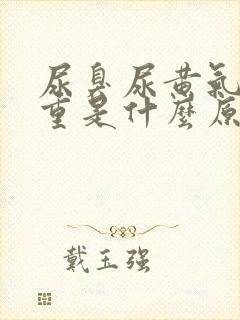 尿臭尿黄氣
重是什麼原
戴玉强